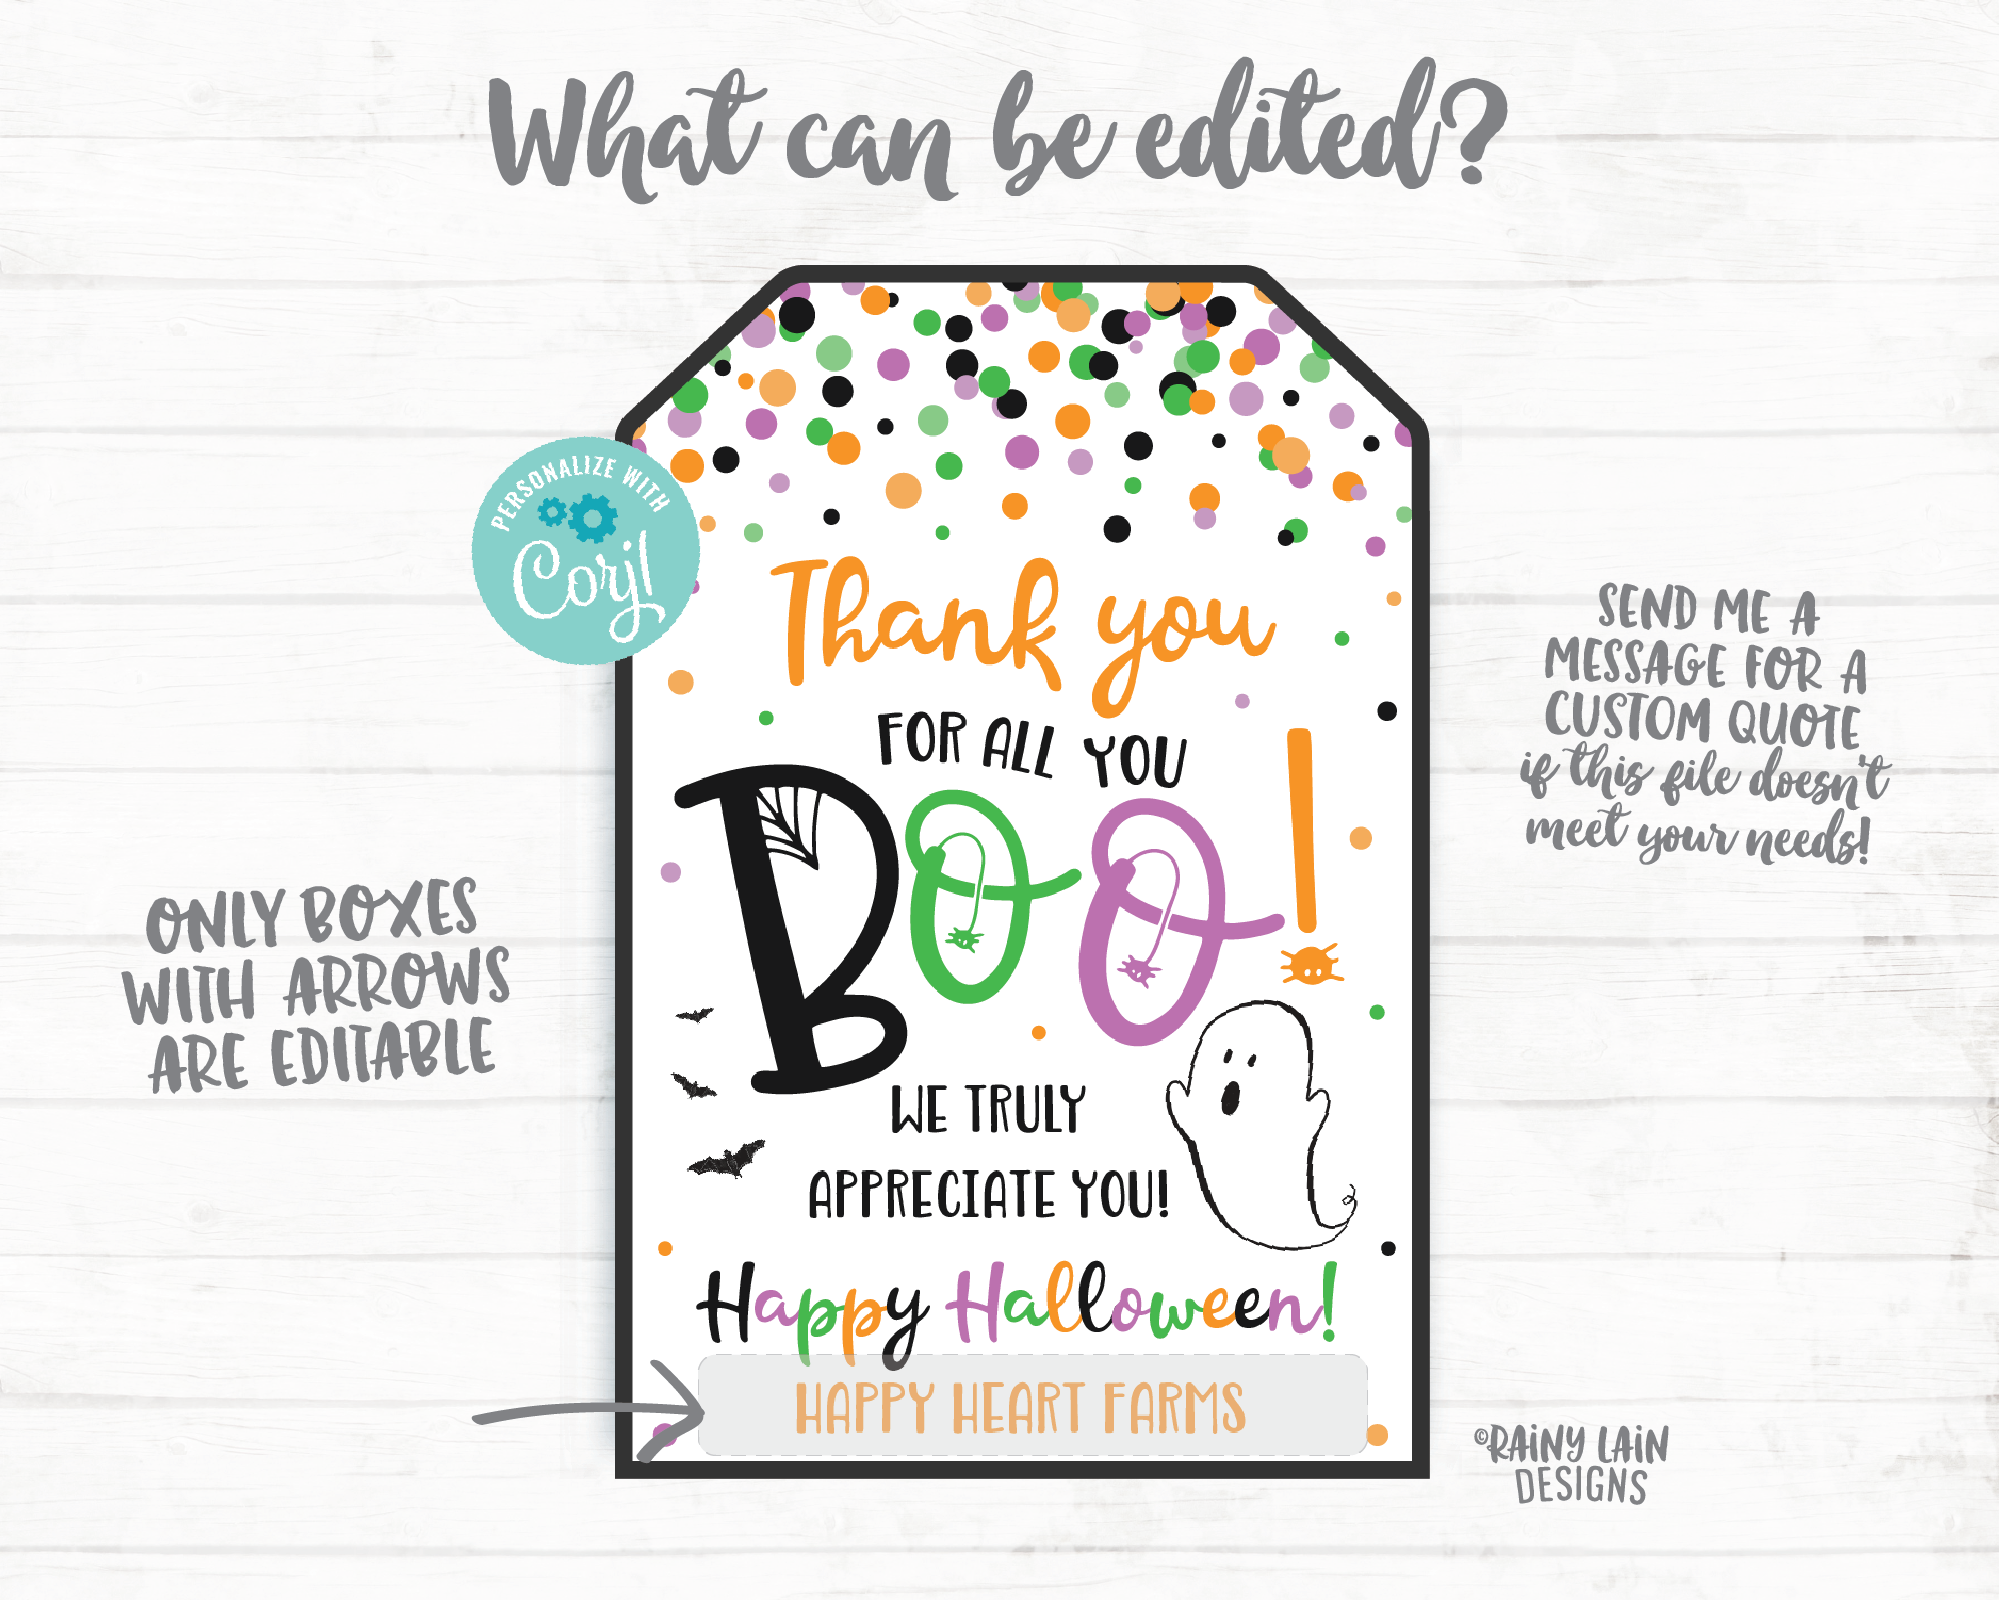 What can be edited?
PERSONALIZE WITH
Corjl
Thank you
FOR ALL YOU
BOO!
WE TRULY
APPRECIATE YOU!
Happy Halloween!
HAPPY HEART FARMS
ONLY BOXES
WITH ARROWS
ARE EDITABLE
SEND ME A
MESSAGE FOR A
CUSTOM QUOTE
if this file doesn't
meet your needs!
©RAINY LAIN
DESIGNS